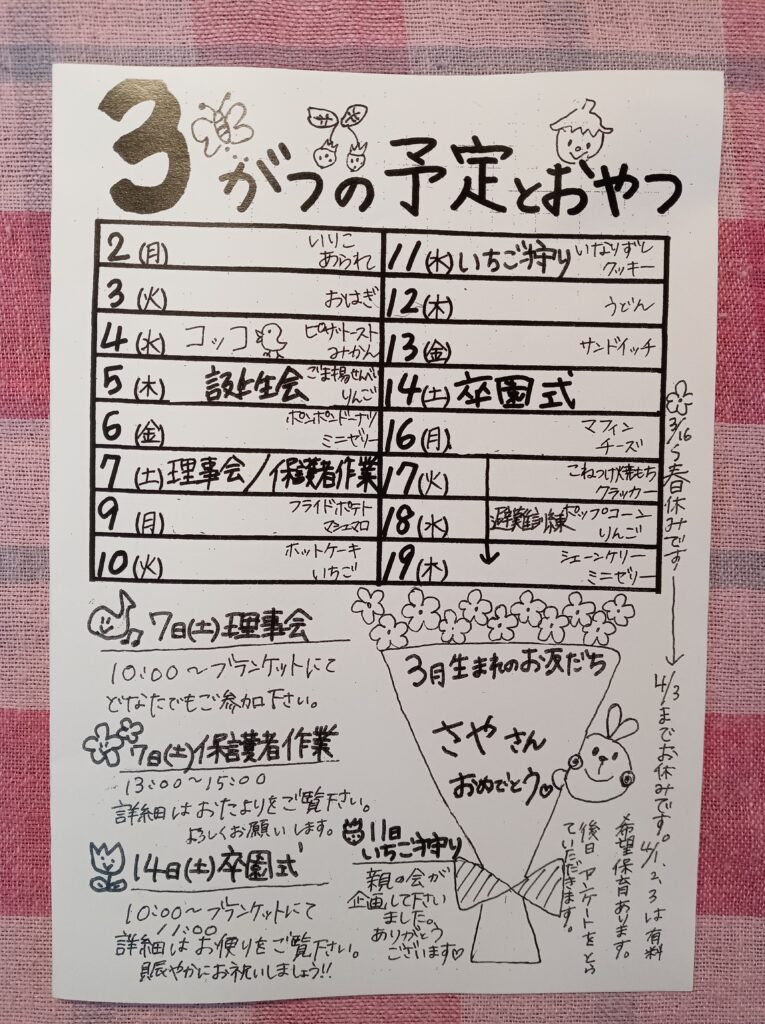 3がつの予定とおやつ
2(月) いりこ
あられ
3(火) おはぎ
4(水) コッコ ピザトースト
みかん
5(木) 誕生会 ごま揚せんべい
りんご
6(金) ポンポンドーナツ
ミニゼリー
7(土) 理事会/保護者作業
9(月) フライドポテト
マシュマロ
10(火) ホットケーキ
いちご
11(水) いちご狩り いなりずし
クッキー
12(木) うどん
13(金) サンドイッチ
14(土) 卒園式
16(月) マフィン
チーズ
17(火) こねつけ焼もち
クラッカー
18(水) 避難訓練 ポップコーン
りんご
19(木) シェーンケリー
ミニゼリー
3/16〜春休みです
4/3までお休みです。
4/1、2、3は有料
希望保育あります。
後日アンケートをとら
せていただきます。
7日(土)理事会
10:00〜ブランケットにて
どなたでもご参加下さい。
7日(土)保護者作業
13:00〜15:00
詳細はおたよりをご覧下さい。
よろしくお願いします。
14日(土)卒園式
10:00〜ブランケットにて
11:00
詳細はお便りをご覧下さい。
賑やかにお祝いしましょう!!
3月生まれのお友だち
さやさん
おめでとう♡
11日
いちご狩り
親の会が
企画して下さい
ました。
ありがとう
ございます♡